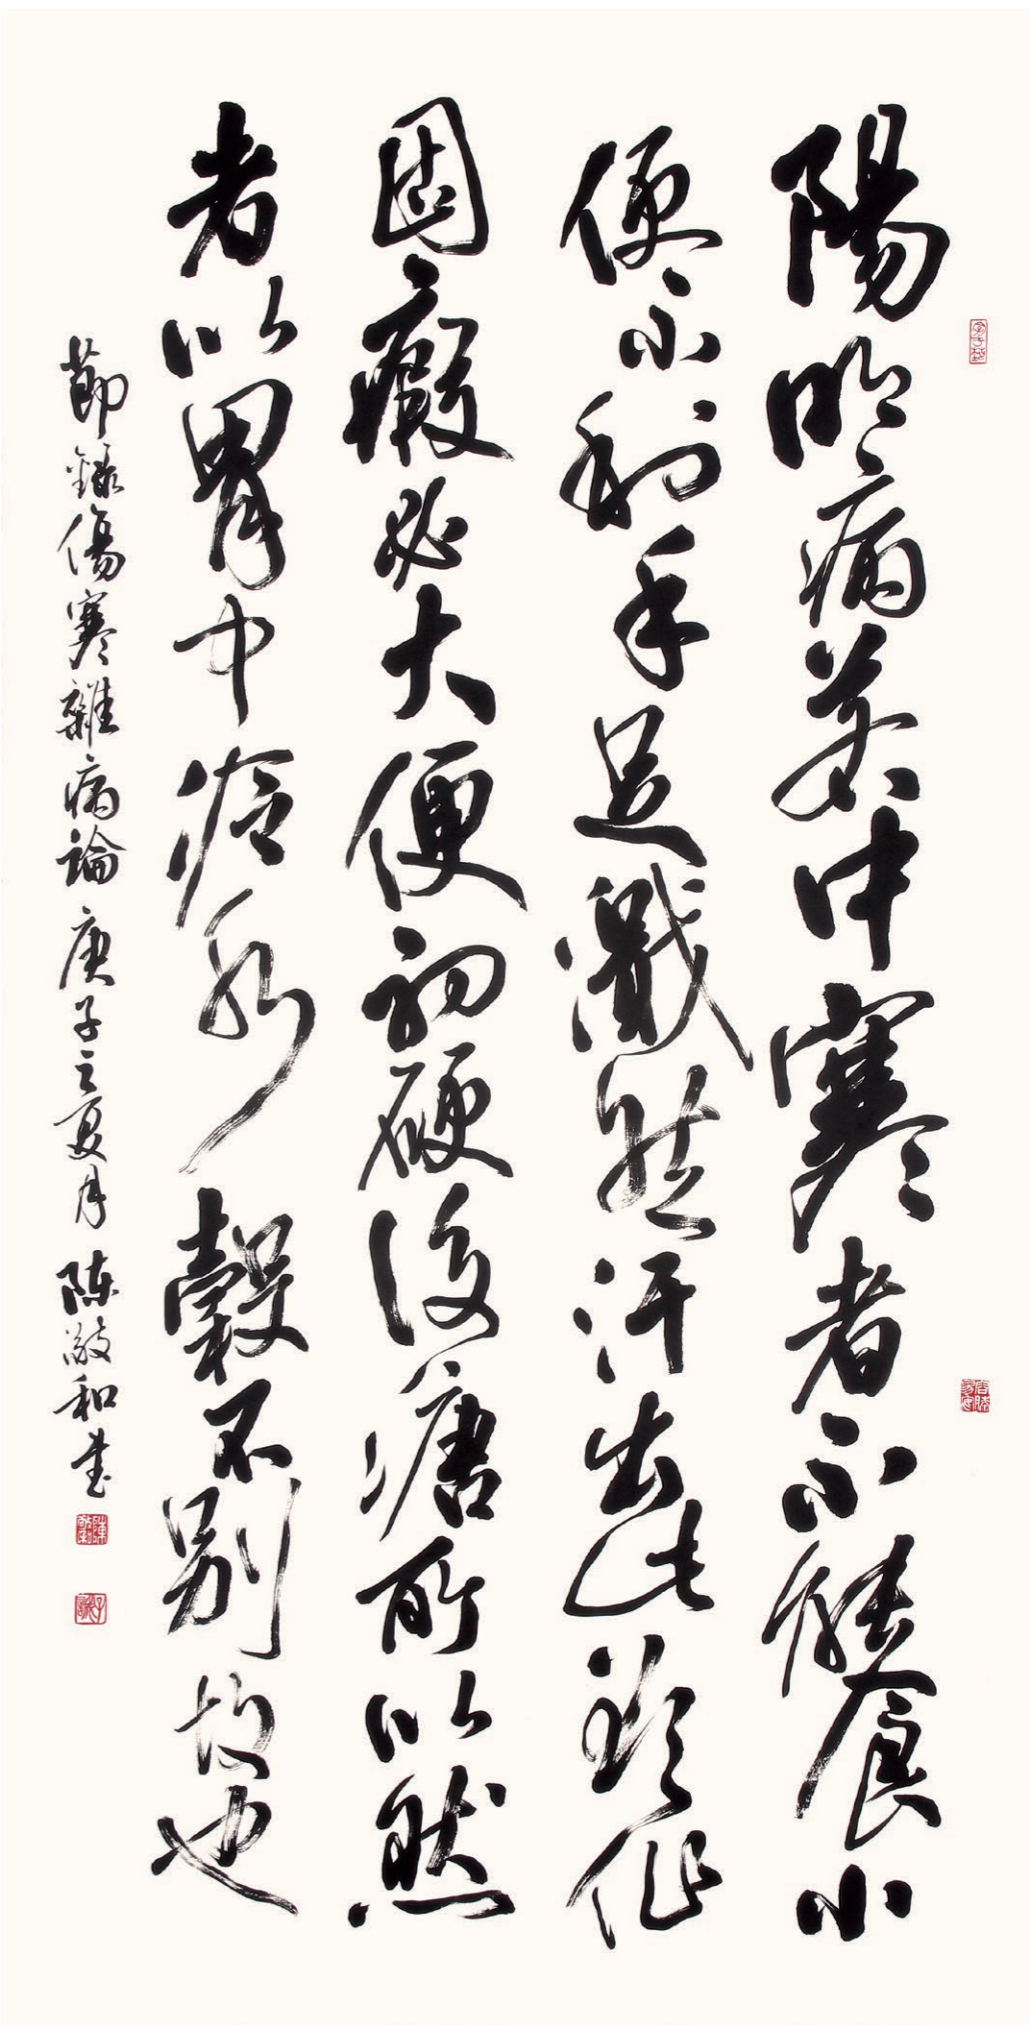 陽明病若中寒者不能食小
便不利手足濈然汗出此欲作
固瘕必大便初硬後溏所以然
者以胃中冷水穀不別故也
節錄傷寒雜病論庚子之夏月陳敬和書